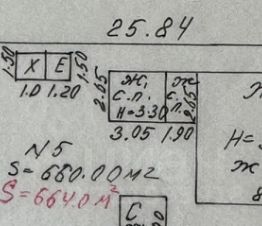 25.84
1.50 X E 1.50
1.0 1.20
2.65 Ж, Ж 2.65
С.П. С.
Н=3.30 П.
3.05 1.90
Н=3
Ж
8
N 5
S=660.00м2
S=664.0м²
С